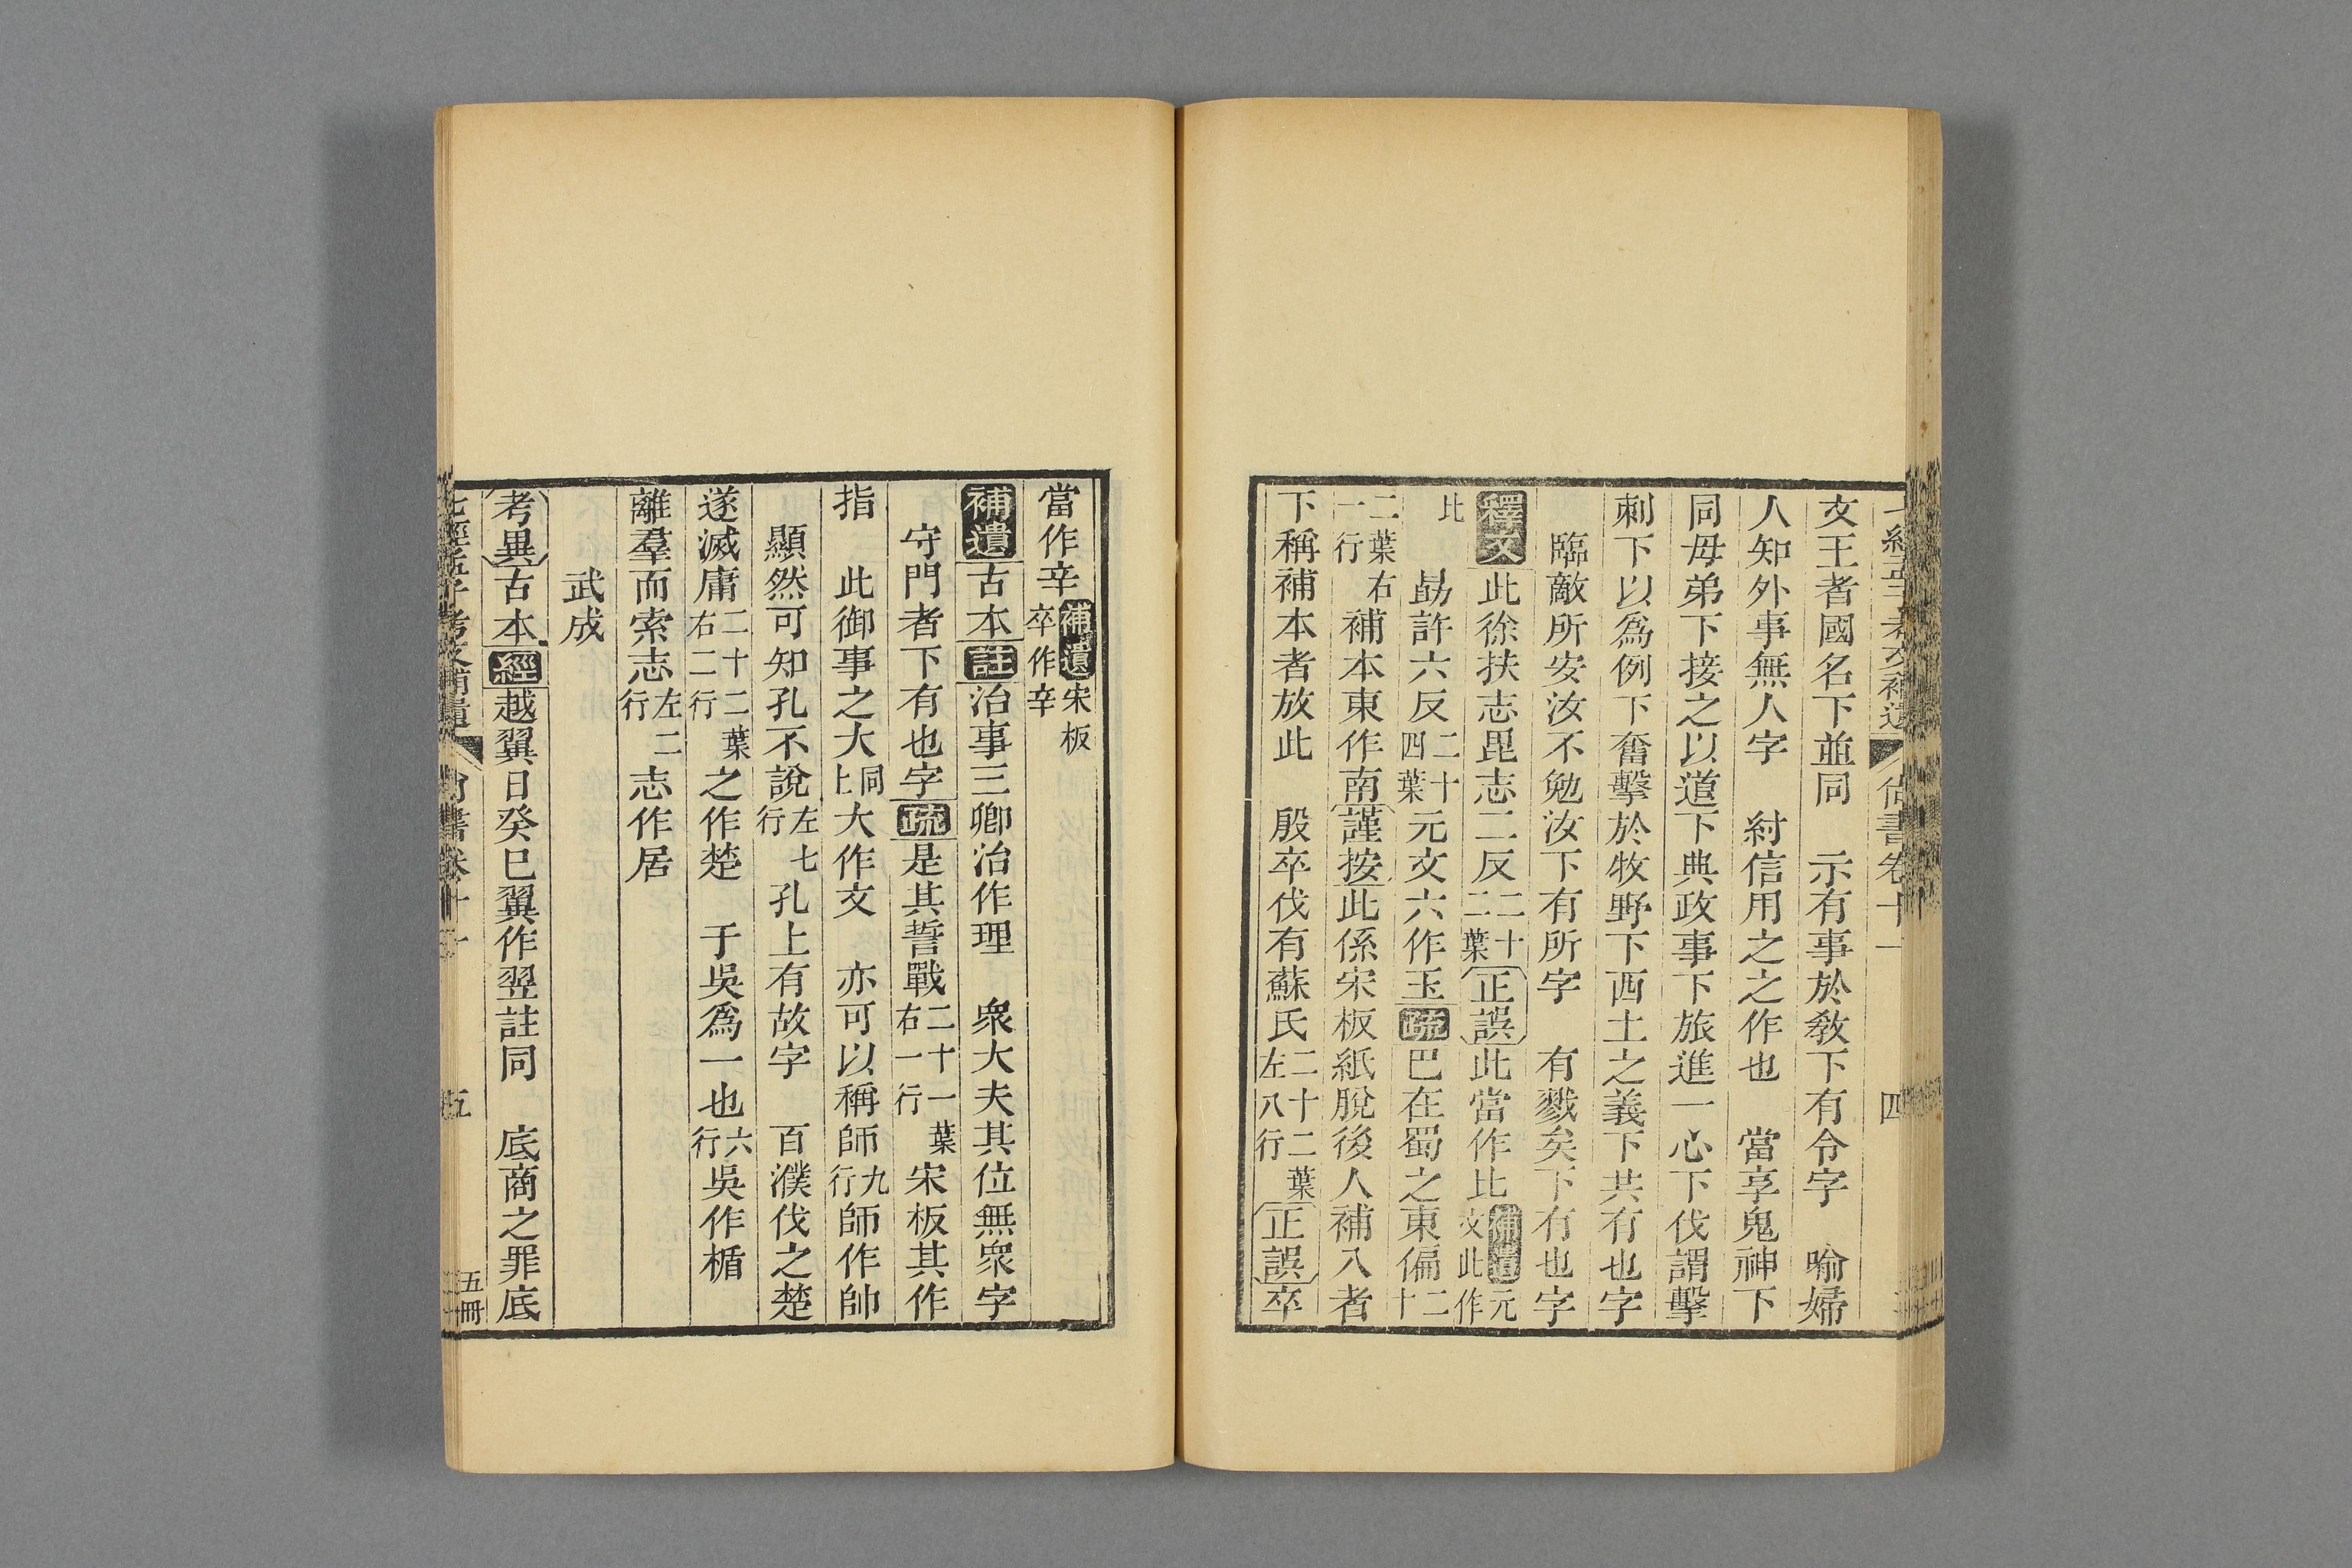 七經孟子考文補遺 尚書卷十一 四
文王者國名下並同 示有事於敎下有令字 喻婦
人知外事無人字 紂信用之之作也 當享鬼神下
同母弟下接之以道下典政事下旅進一心下伐謂擊
刺下以爲例下奮擊於牧野下西土之義下共有也字
臨敵所安汝不勉汝下有所字 有戮矣下有也字
釋文此徐扶志毘志二反二十二葉正誤此當作比補遺元文此作
比 勗許六反二十四葉元文六作玉疏巴在蜀之東偏二十
二葉右一行補本東作南謹按此係宋板紙脫後人補入者
下稱補本者放此 殷卒伐有蘇氏二十二葉左八行正誤卒
當作辛補遺宋板卒作辛
補遺古本註治事三卿治作理 衆大夫其位無衆字
守門者下有也字疏是其誓戰二十一葉右一行宋板其作
指 此御事之大同上大作文 亦可以稱師九行師作帥
顯然可知孔不說左七行孔上有故字 百濮伐之楚
遂滅庸二十二葉右二行之作楚 于吳爲一也六行吳作楯
離羣而索志左二行志作居
武成
考異古本經越翼日癸巳翼作翌註同 底商之罪底
七經孟子考文補遺 尚書卷十一 五 五冊